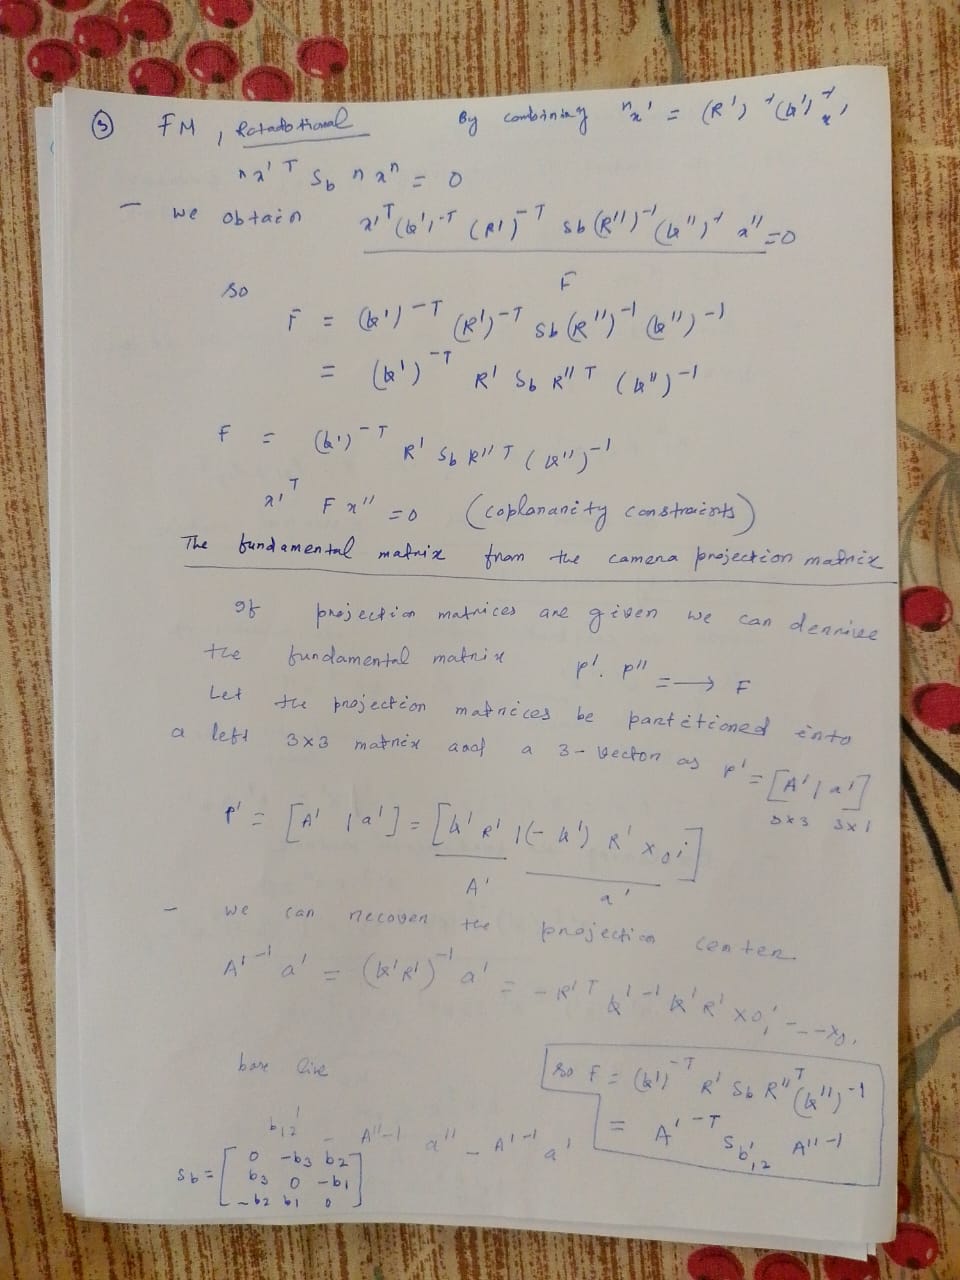 ③ FM, Rotadotional By combining ⁿx' = (R')⁻¹ (k')⁻¹ x',
ⁿx'ᵀ S_b ⁿxⁿ = 0
– we obtain x'ᵀ (k')⁻ᵀ (R')⁻ᵀ S_b (R'')⁻¹ (k'')⁻¹ x'' = 0
F
so
F = (k')⁻ᵀ (R')⁻ᵀ S_b (R'')⁻¹ (k'')⁻¹
= (k')⁻ᵀ R' S_b R''ᵀ (k'')⁻¹
F = (k')⁻ᵀ R' S_b R''ᵀ (k'')⁻¹
x'ᵀ F x'' = 0 (coplananity constraints)
The fundamental matrix from the camera projection matrix
If projection matrices are given we can derrive
the fundamental matrix p'. p'' =⟶ F
Let the projection matrices be partitioned into
a left 3x3 matrix and a 3-vector as p' = [A' | a']
3x3 3x1
P' = [A' | a'] = [k' R' | (- k') R' x₀']
A' a'
– we can recover the projection center
A'⁻¹ a' = (k'R')⁻¹ a' = - R'ᵀ k'⁻¹ k' R' x₀' - - - x₀,
base line
so F = (k')⁻ᵀ R' S_b R''ᵀ (k'')⁻¹
= A'⁻ᵀ S_b'₁₂ A''⁻¹
b₁₂' _ A''⁻¹ a'' _ A'⁻¹ a'
S_b = [ 0 -b₃ b₂
b₃ 0 -b₁
-b₂ b₁ 0 ]